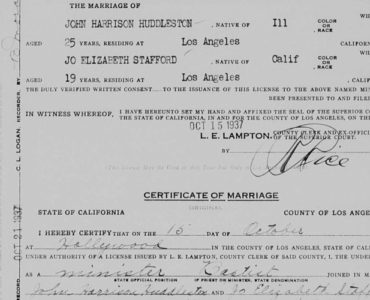 THE MARRIAGE OF
JOHN HARRISON HUDDLESTON, NATIVE OF Ill COLOR OR RACE
AGED 25 YEARS, RESIDING AT Los Angeles CALIFORNIA
JO ELIZABETH STAFFORD, NATIVE OF Calif COLOR OR RACE
AGED 19 YEARS, RESIDING AT Los Angeles CALIF
THE DULY VERIFIED WRITTEN CONSENT TO THE ISSUANCE OF THIS LICENSE TO THE ABOVE NAMED MIN
BEEN PRESENTED TO AND FILE
IN WITNESS WHEREOF, I HAVE HEREUNTO SET MY HAND AND AFFIXED THE SEAL OF THE SUPERIOR CO
THE STATE OF CALIFORNIA, IN AND FOR THE COUNTY OF LOS ANGELES, ON THE
OCT 15 1937
L. E. LAMPTON, COUNTY CLERK AND EX OFFICI
OF THE SUPERIOR COURT.
BY Rice
C. L. LOGAN, RECORDER
CERTIFICATE OF MARRIAGE
(ORIGINAL)
STATE OF CALIFORNIA COUNTY OF LOS ANGEL
I HEREBY CERTIFY THAT ON THE 15 DAY OF October
AT Hollywood IN THE COUNTY OF LOS ANGELES, STATE OF CALI
UNDER AUTHORITY OF A LICENSE ISSUED BY L. E. LAMPTON, COUNTY CLERK OF SAID COUNTY, I, THE UNDER
AS A minister JOINED IN MA
STATE OFFICIAL POSITION IF PRIEST OR MINISTER, STATE DENOMINATION
John Harrison Huddleston and Jo Elizabeth Staf
OCT 21 1937